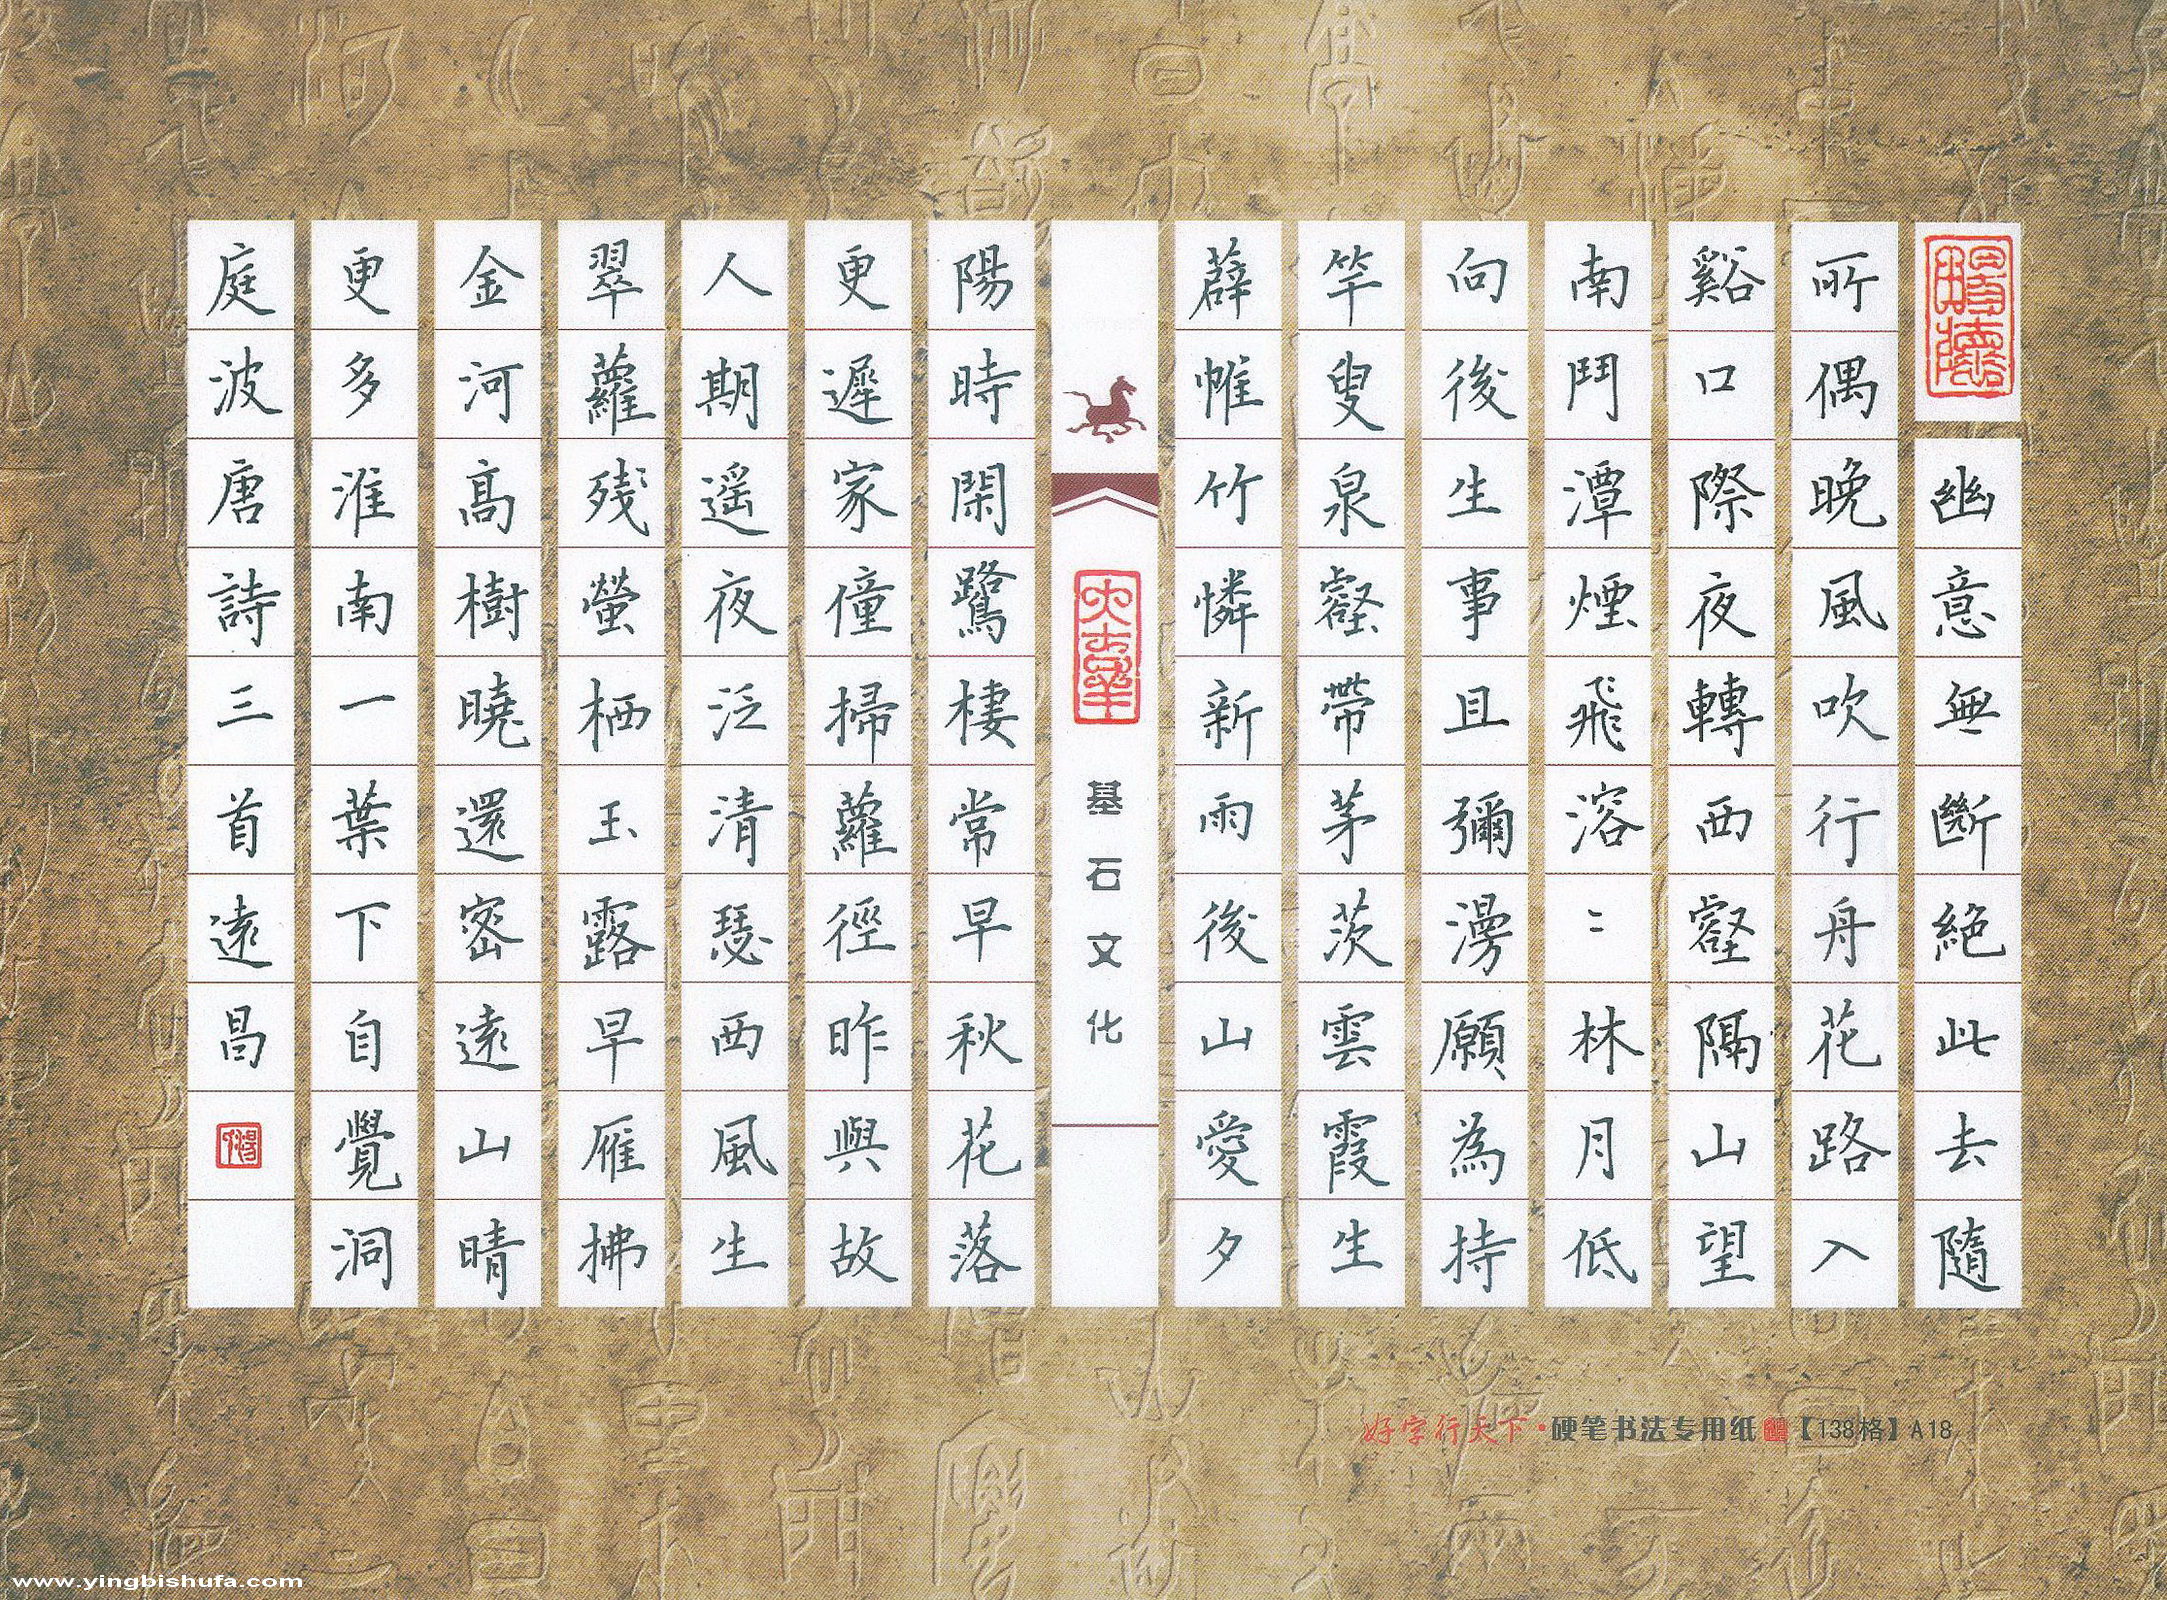 幽意無斷絕此去隨
所偶晚風吹行舟花路入
谿口際夜轉西壑隔山望
南鬥潭煙飛溶〻林月低
向後生事且彌漫願為持
竿叟泉壑帶茅茨雲霞生
薜帷竹憐新雨後山愛夕
基石文化
陽時閑鷺棲常早秋花落
更遲家僮掃蘿徑昨與故
人期遥夜泛清瑟西風生
翠蘿殘螢栖玉露早雁拂
金河高樹曉還密遠山晴
更多淮南一葉下自覺洞
庭波唐詩三首遠昌
好字行天下·硬笔书法专用纸【138格】A18
www.yingbishufa.com